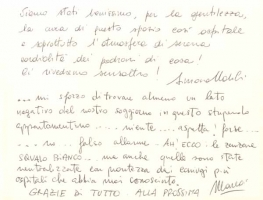 Siamo stati benissimo, per la gentilezza,
la cura di questo spazio così ospitale
e soprattutto l'atmosfera di serena
cordialità dei padroni di casa!
Vi rivedremo senz'altro!
... mi sforzo di trovare almeno un lato
negativo del nostro soggiorno in questo stupendo
appartamentino ... niente ... aspetta! forse ...
... no falso allarme. Ah! ECCO: le zanzare
SQUALO BIANCO ... ma anche quelle sono state
neutralizzate la prontezza dei coniugi più
ospitali che abbia mai conosciuto.
GRAZIE DI TUTTO ALLA PROSSIMA
Marco